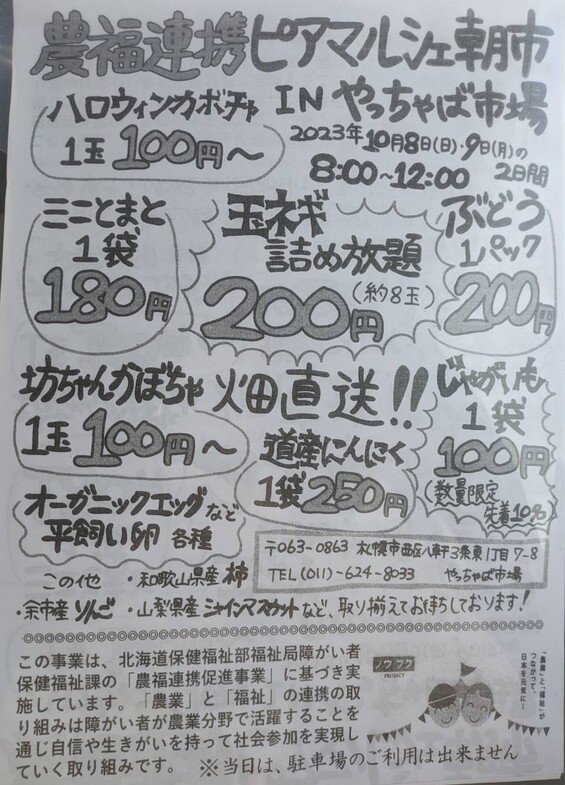 農福連携ピアマルシェ朝市
IN やっちゃば市場
ハロウィンカボチャ
1玉 100円～
2023年10月8日(日)・9日(月)の
2日間
8:00～12:00
ミニとまと
1袋
180円
玉ネギ
詰め放題
(約8玉)
200円
ぶどう
1パック
200円
坊ちゃんかぼちゃ
1玉 100円～
畑直送!!
じゃがいも
1袋
100円
(数量限定
先着10名)
道産にんにく
1袋250円
オーガニックエッグなど
平飼い卵 各種
〒063-0863 札幌市西区八軒3条東1丁目7-8
TEL(011)-624-8033 やっちゃば市場
この他 ・和歌山県産 柿
・余市産りんご ・山梨県産シャインマスカットなど、取り揃えてお待ちしております!
この事業は、北海道保健福祉部福祉局障がい者
保健福祉課の「農福連携促進事業」に基づき実
施しています。「農業」と「福祉」の連携の取
り組みは障がい者が農業分野で活躍することを
通じ自信や生きがいを持って社会参加を実現し
ていく取り組みです。 ※当日は、駐車場のご利用は出来ません
ノウフク
PROJECT
「農業」と「福祉」が
つながって、
日本を元気に!